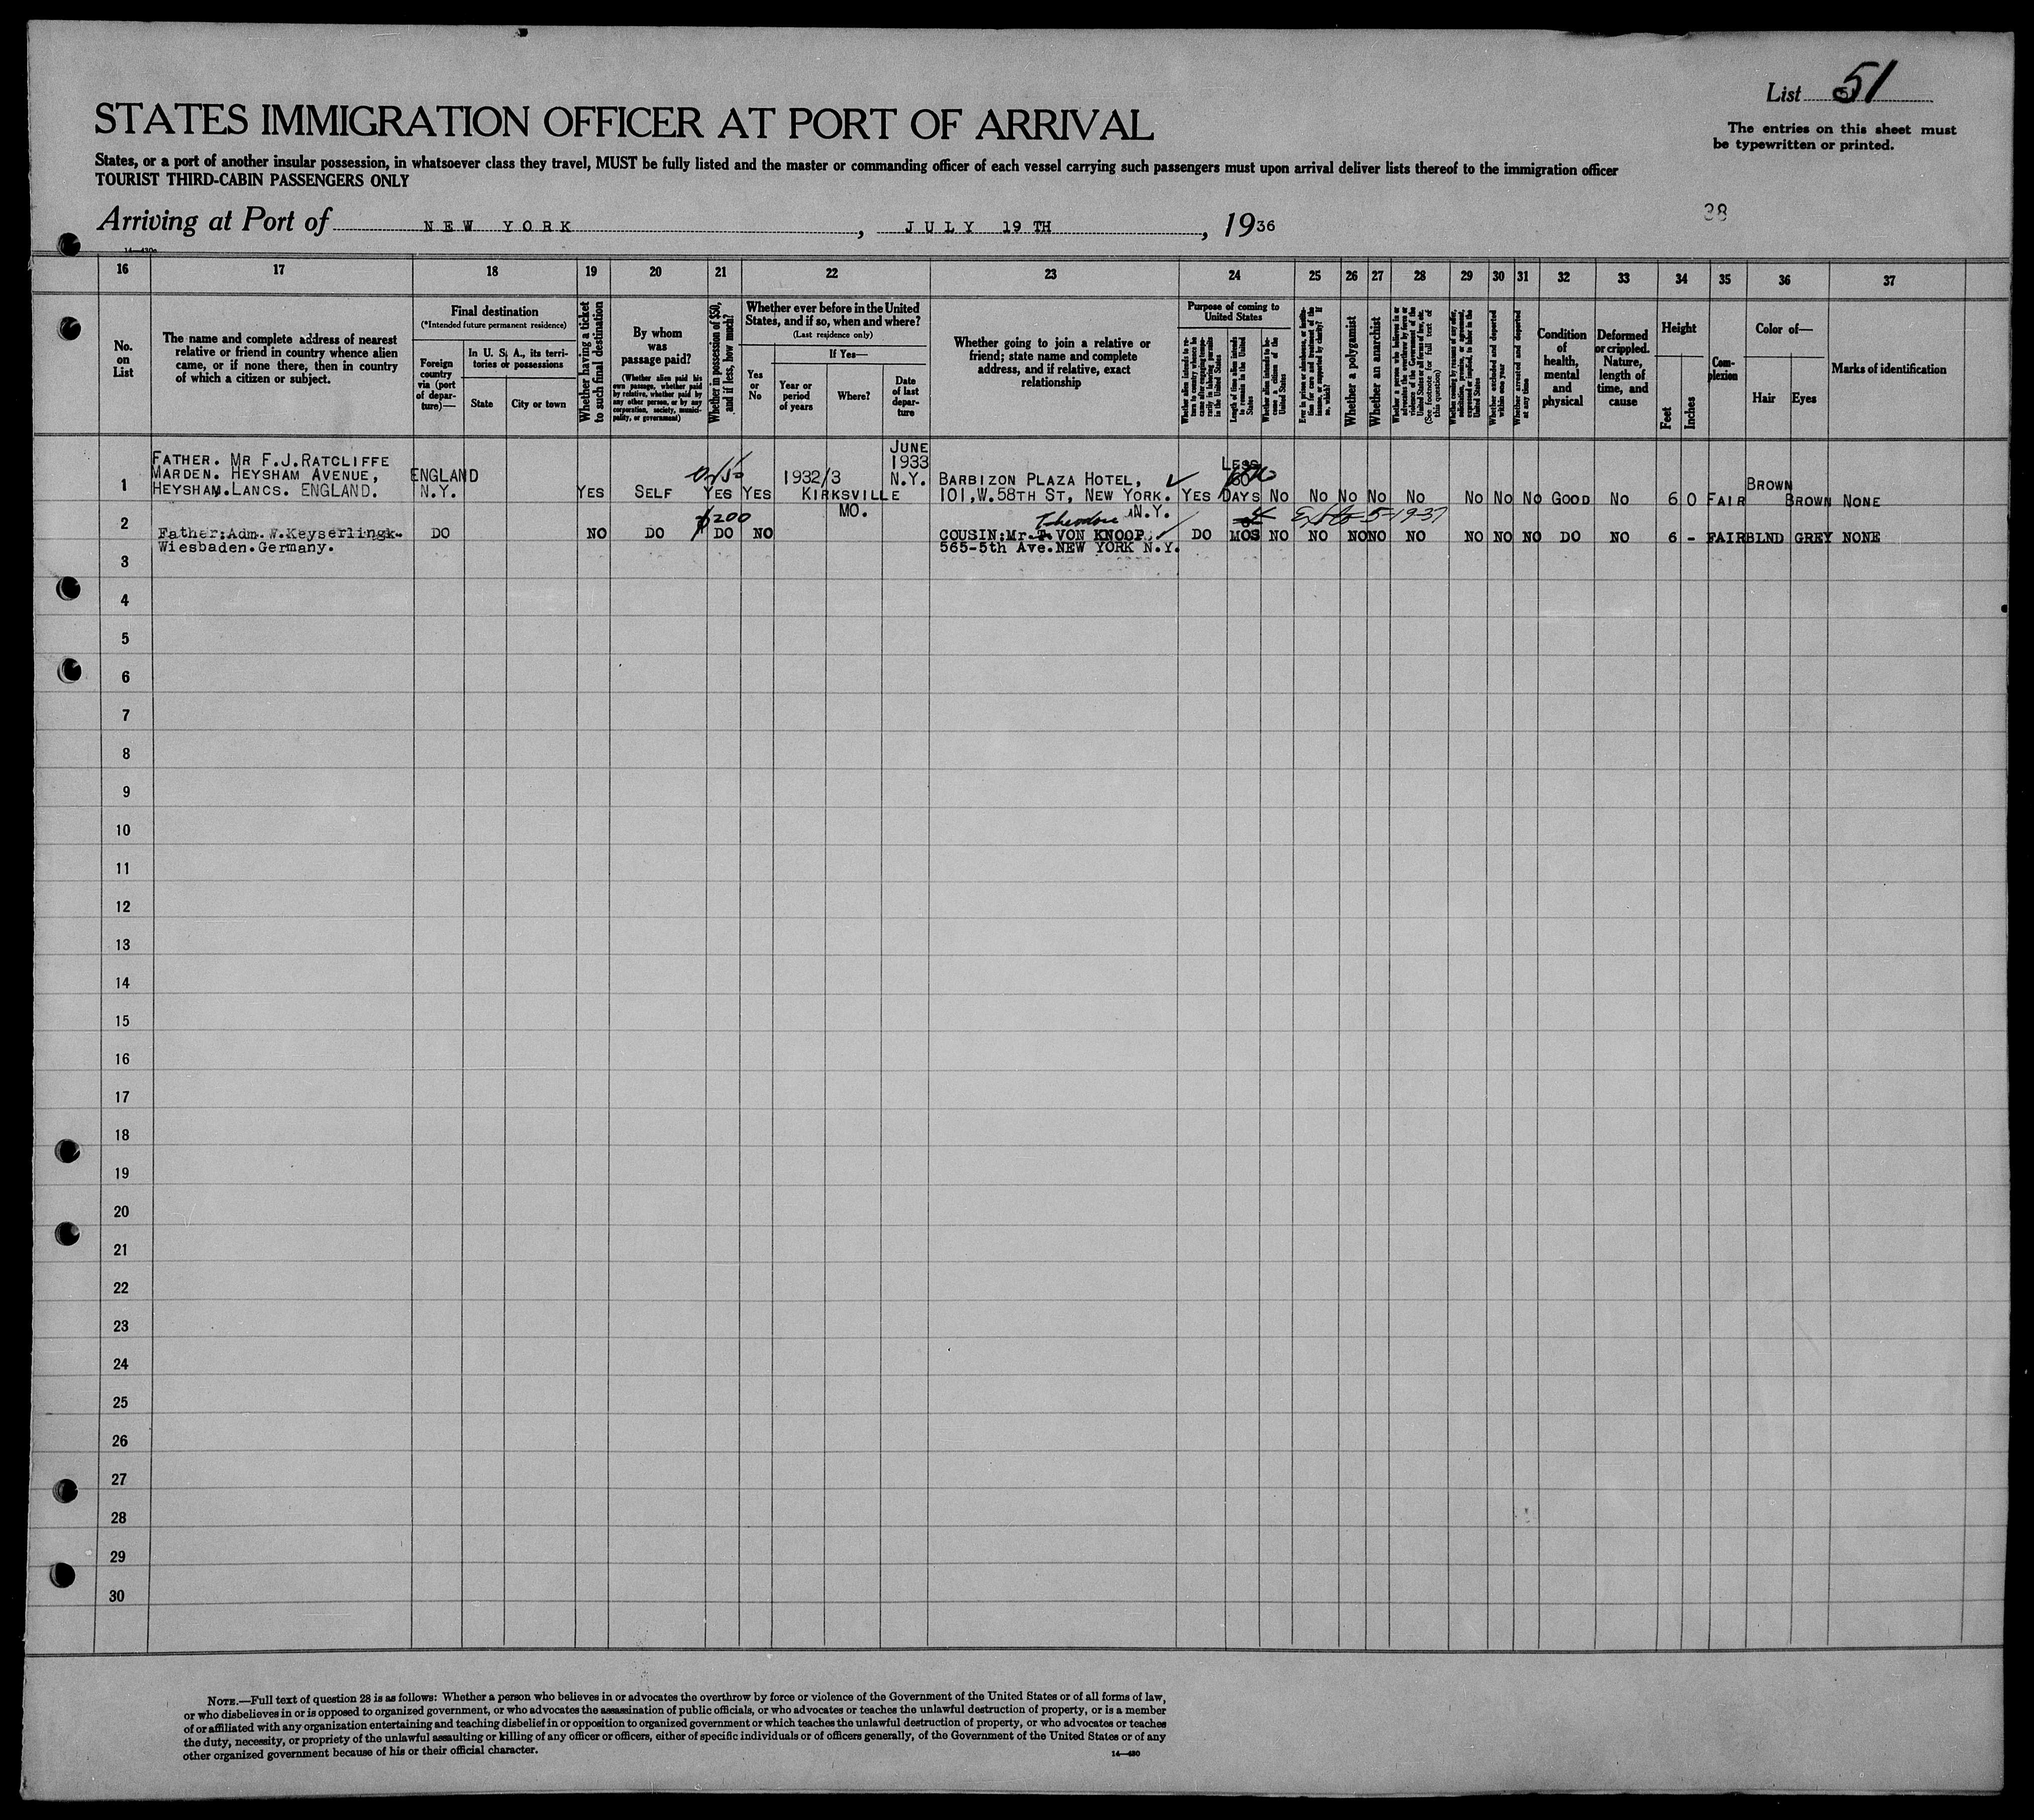 List 51
The entries on this sheet must
be typewritten or printed.
STATES IMMIGRATION OFFICER AT PORT OF ARRIVAL
States, or a port of another insular possession, in whatsoever class they travel, MUST be fully listed and the master or commanding officer of each vessel carrying such passengers must upon arrival deliver lists thereof to the immigration officer
TOURIST THIRD-CABIN PASSENGERS ONLY
38
Arriving at Port of NEW YORK, JULY 19TH, 1936
16 17 18 19 20 21 22 23 24 25 26 27 28 29 30 31 32 33 34 35 36 37
No.
on
List
The name and complete address of nearest
relative or friend in country whence alien
came, or if none there, then in country
of which a citizen or subject.
Final destination
(*Intended future permanent residence)
Foreign
country
via (port
of depar-
ture)—
In U. S. A., its terri-
tories or possessions
State
City or town
Whether having a ticket
to such final destination
By whom
was
passage paid?
(Whether alien paid his
own passage, whether paid
by relative, whether paid by
any other person, or by any
corporation, society, munici-
pality, or government)
Whether in possession of $50,
and if less, how much?
Whether ever before in the United
States, and if so, when and where?
(Last residence only)
Yes
or
No
If Yes—
Year or
period
of years
Where?
Date
of last
depar-
ture
Whether going to join a relative or
friend; state name and complete
address, and if relative, exact
relationship
Purpose of coming to
United States
Whether alien intends to re-
turn to country whence he
came after engaging tempo-
rarily in laboring pursuits
in the United States
Length of time alien intends
to remain in the United
States
Whether alien intends to be-
come a citizen of the
United States
Whether a polygamist
Whether an anarchist
Whether excluded and deported
within one year
Whether arrested and deported
at any time
Condition
of
health,
mental
and
physical
Deformed
or crippled.
Nature,
length of
time, and
cause
Height
Feet
Inches
Com-
plexion
Color of—
Hair
Eyes
Marks of identification
1
FATHER. MR F.J.RATCLIFFE
MARDEN. HEYSHAM AVENUE,
HEYSHAM.LANCS. ENGLAND.
ENGLAND
N.Y.
YES SELF YES YES
1932/3
KIRKSVILLE
MO.
JUNE
1933
N.Y.
BARBIZON PLAZA HOTEL,
101,W.58TH ST, NEW YORK.
N.Y.
YES
LESS
60
DAYS NO NO NO NO NO NO NO NO GOOD NO 6 0 FAIR BROWN BROWN NONE
2
Father:Adm. W.Keyserlingk-
Wiesbaden.Germany.
DO NO DO $200 DO NO
Theodore
COUSIN:Mr.T. VON KNOOP.
565-5th Ave.NEW YORK N.Y.
DO MOS NO NO NO NO NO NO NO NO DO NO 6 - FAIR BLND GREY NONE
5-19-37
3
4
5
6
7
8
9
10
11
12
13
14
15
16
17
18
19
20
21
22
23
24
25
26
27
28
29
30
NOTE.—Full text of question 28 is as follows: Whether a person who believes in or advocates the overthrow by force or violence of the Government of the United States or of all forms of law,
or who disbelieves in or is opposed to organized government, or who advocates the assassination of public officials, or who advocates or teaches the unlawful destruction of property, or is a member
of or affiliated with any organization entertaining and teaching disbelief in or opposition to organized government or which teaches the unlawful destruction of property, or who advocates or teaches
the duty, necessity, or propriety of the unlawful assaulting or killing of any officer or officers, either of specific individuals or of officers generally, of the Government of the United States or of any
other organized government because of his or their official character.
14—430